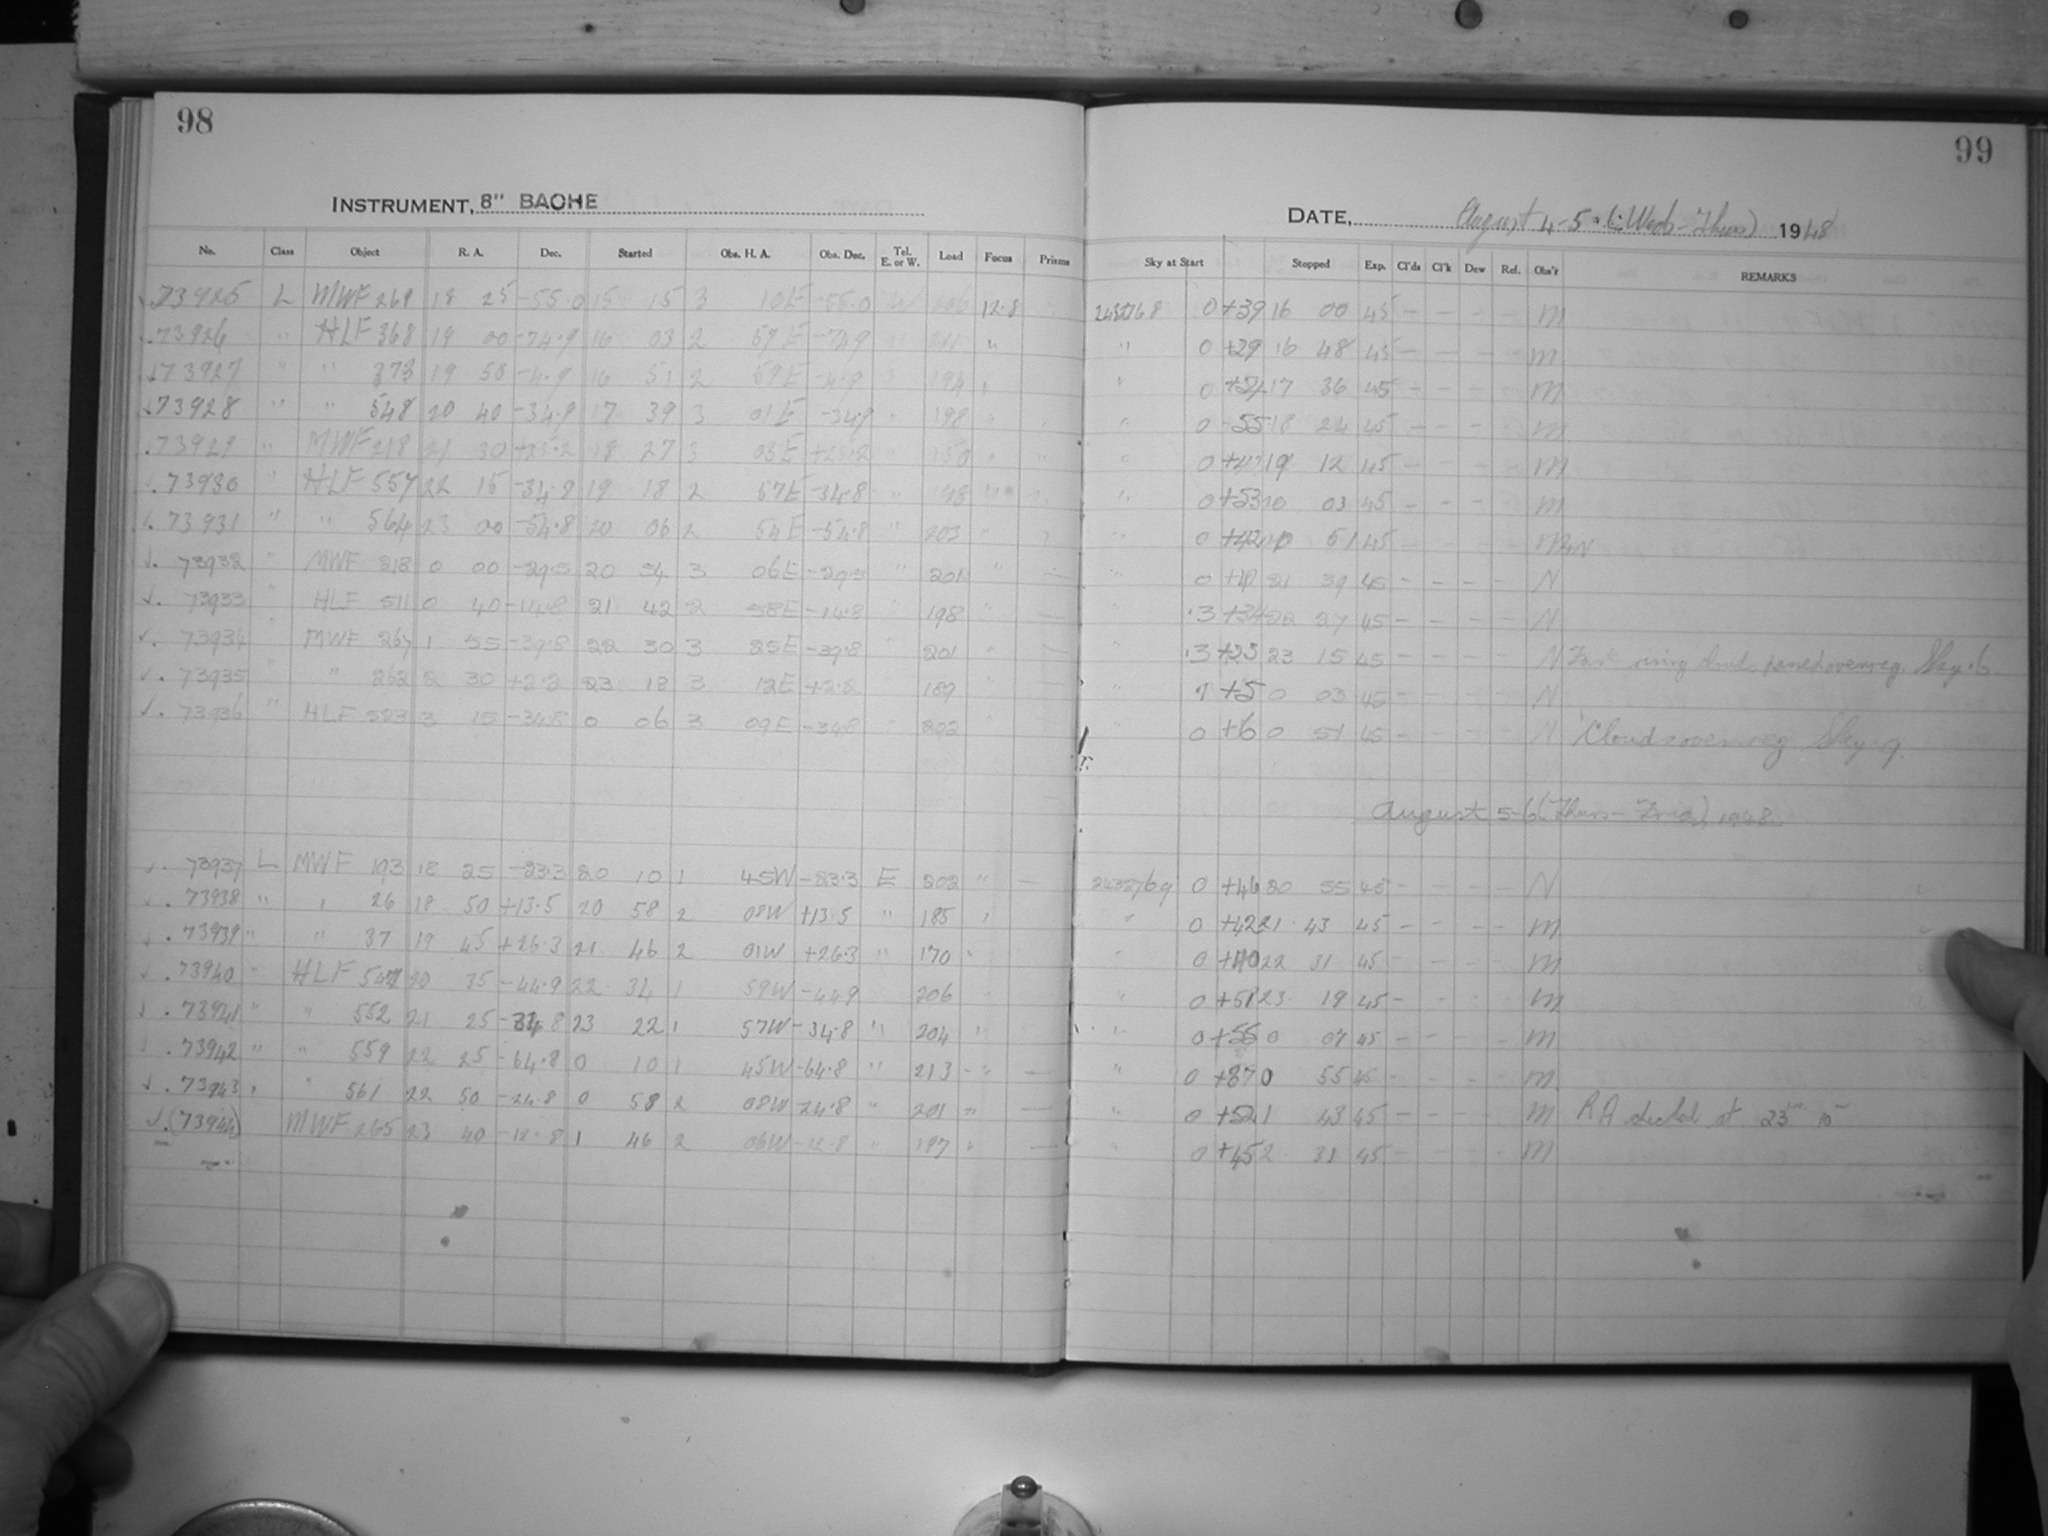 98
INSTRUMENT, 8" BACHE
No. Class Object R. A. Dec. Started Obs. H. A. Obs. Dec. Tel. E. or W. Load Focus Prisms
73925 L MWF 269 18 25 -55.0 15 15 3 10E -55.0 W 206 12.8
73926 " HLF 368 19 00 -74.9 16 03 2 57E -74.9 211 "
73927 " " 373 19 50 -4.9 16 51 2 59E -4.9 194
73928 " " 548 20 40 -34.9 17 39 3 01E -34.9 198
73929 " MWF 218 21 30 18 27 3 03E 150
73930 " HLF 557 22 15 -34.9 19 18 2 57E -34.8 "
73931 " " 564 23 00 -54.8 20 06 2 54E -54.8 " 203
73932 " MWF 218 0 00 -29.5 20 54 3 06E -29.5 " 201 "
73933 HLF 511 0 40 -14.8 21 42 2 58E -14.8 " 198 "
73934 " MWF 267 1 55 -39.8 22 30 3 25E -39.8 " 201 "
73935 " " 262 2 30 +2.2 23 18 3 12E +2.2 " 189 "
73936 " HLF 523 3 15 -34.8 0 06 3 09E -34.8 " 202
73937 L MWF 193 18 25 -23.3 20 10 1 45W -23.3 E 202 " -
73938 " " 26 18 50 +13.5 20 58 2 08W +13.5 " 185 "
73939 " " 37 19 45 +26.3 21 46 2 01W +26.3 " 170 "
73940 " HLF 20 35 -44.9 22 34 1 59W -44.9 206
73941 " " 552 21 25 -34.8 23 22 1 57W -34.8 " 204 "
73942 " " 559 22 25 -64.8 0 10 1 45W -64.8 " 213 - " -
73943 " " 561 22 50 -24.8 0 58 2 08W 24.8 " 201 " -
(73944) MWF 265 23 40 -12.8 1 46 2 06W -12.8 197 " -
99
DATE, August 4-5 (Weds-Thurs) 1948
Sky at Start Stopped Exp. Cl'ds Cl'k Dew Ref. Obs'r REMARKS
2432768 0 +39 16 00 45 - - - - M
" 0 +29 16 48 45 - - - - M
" 0 17 36 45 - - - - M
" 0 55 18 24 45 - - - - M
" 0 19 12 45 - - - - M
" 0 +53 03 45 - - - - M
" 0 +42 51 45 - - - -
" 0 21 39 45 - - - - N
.3 +34 22 27 45 - - - - N
" .3 +23 23 15 45 - - - - N cloud Sky .6
" +5 0 03 45 - - - - N
" 0 +6 0 51 45 - - - - N Clouds over reg. Sky .9
August 5-6 (Thurs-Fri) 1948
2432769 0 +46 20 55 45 - - - - N
" 0 +42 21 43 45 - - - M
" 0 22 31 45 - - - - M
" 0 +51 23 19 45 - - - - M
" 0 0 07 45 - - - - M
" 0 +87 0 55 45 - - - - M
" 0 +52 1 43 45 - - - - M RA at 23 10
" 0 +45 2 31 45 - - - - M